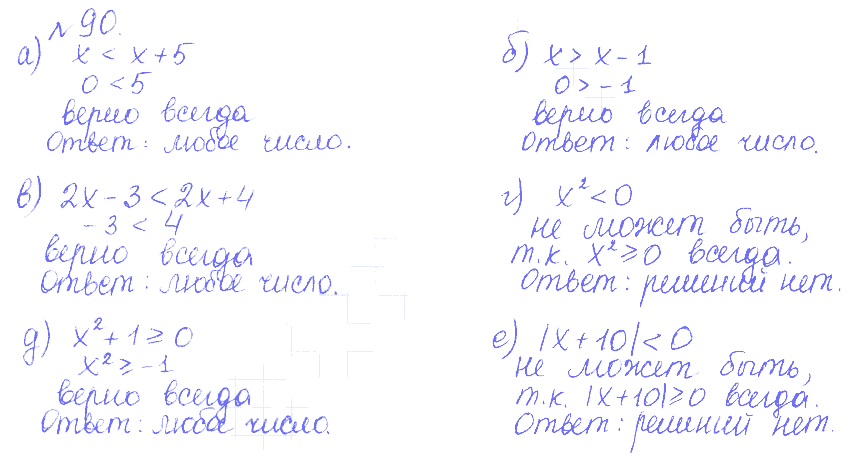 № 90.
а) x < x + 5
0 < 5
верно всегда
Ответ: любое число.
б) x > x - 1
0 > -1
верно всегда
Ответ: любое число.
в) 2x - 3 < 2x + 4
-3 < 4
верно всегда
Ответ: любое число.
г) x² < 0
не может быть,
т.к. x² ≥ 0 всегда.
Ответ: решений нет.
д) x² + 1 ≥ 0
x² ≥ -1
верно всегда
Ответ: любое число.
е) |x + 10| < 0
не может быть,
т.к. |x+10| ≥ 0 всегда.
Ответ: решений нет.